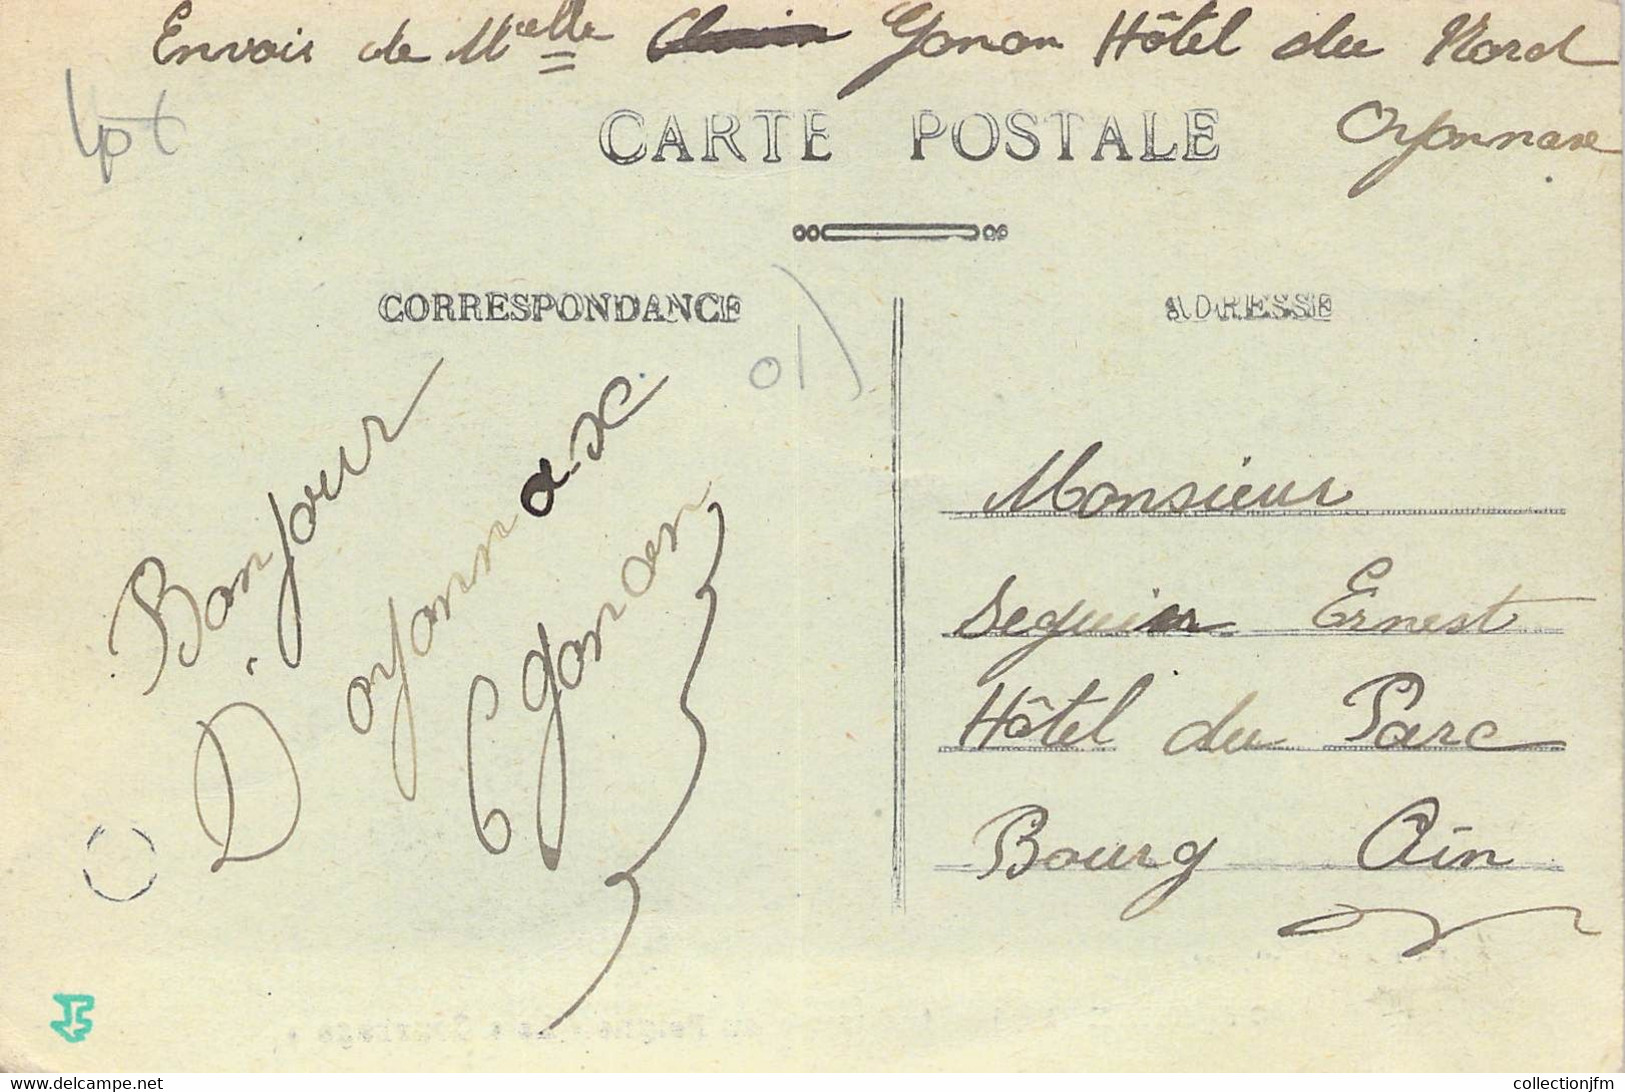 Envois de Melle Gonon Hôtel du Nord
Oyonnax
CARTE POSTALE
CORRESPONDANCE
ADRESSE
01)
Bonjour
D'oyonnax
Gonon
Monsieur
Seguin Ernest
Hôtel du Parc
Bourg Ain
collectionjfm